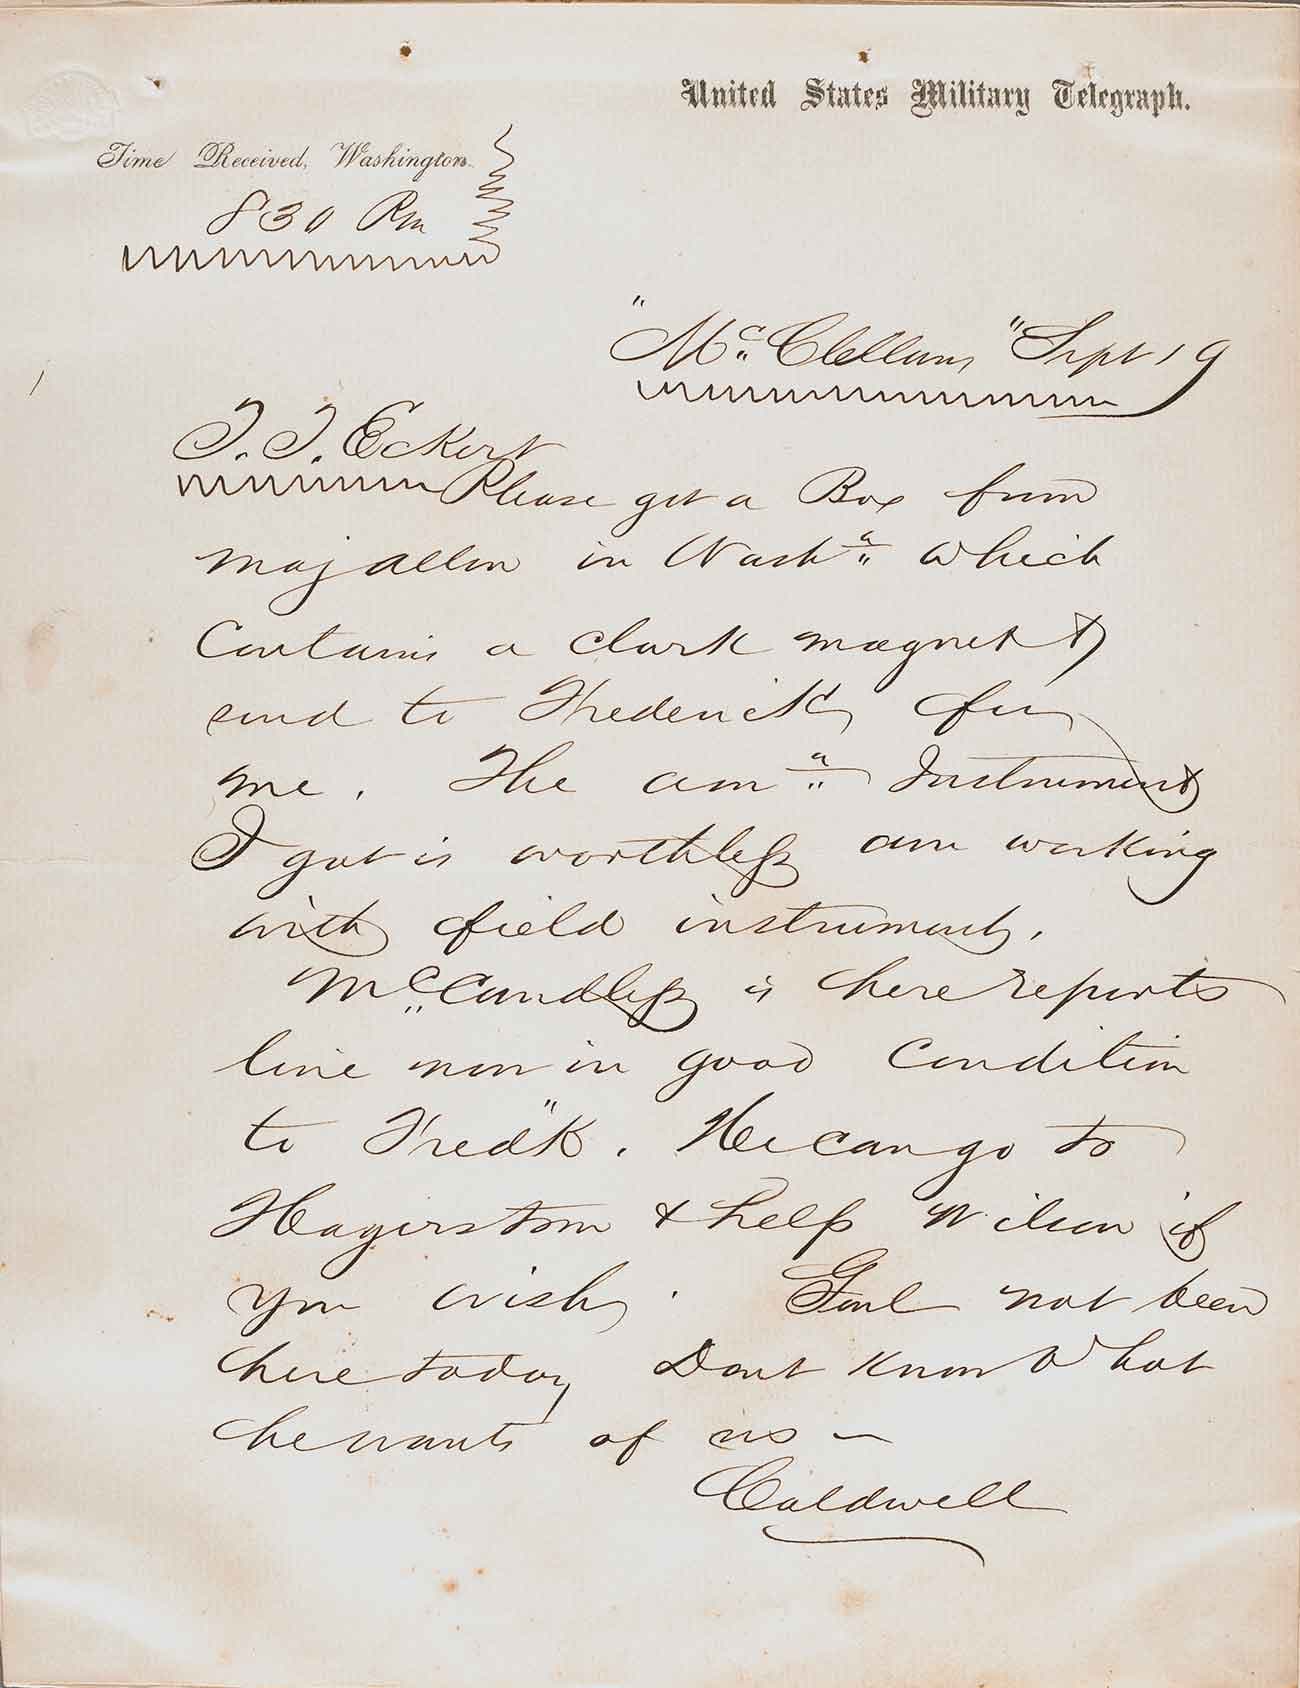 United States Military Telegraph.
Time Received, Washington.
830 Pm
"McClellans" Sept 19
T. T. Eckert
Please get a Box from
Maj Allen in Washn which
Contains a clark magnet &
send to Frederick for
me. The amn Instrument
I got is worthless am working
with field instrument.
McCandless is here reports
line now in good Condition
to Fred"k. He can go to
Hagerstown & help Wilson if
you wish. Gnl not been
here today Dont Know What
he wants of us —
Caldwell